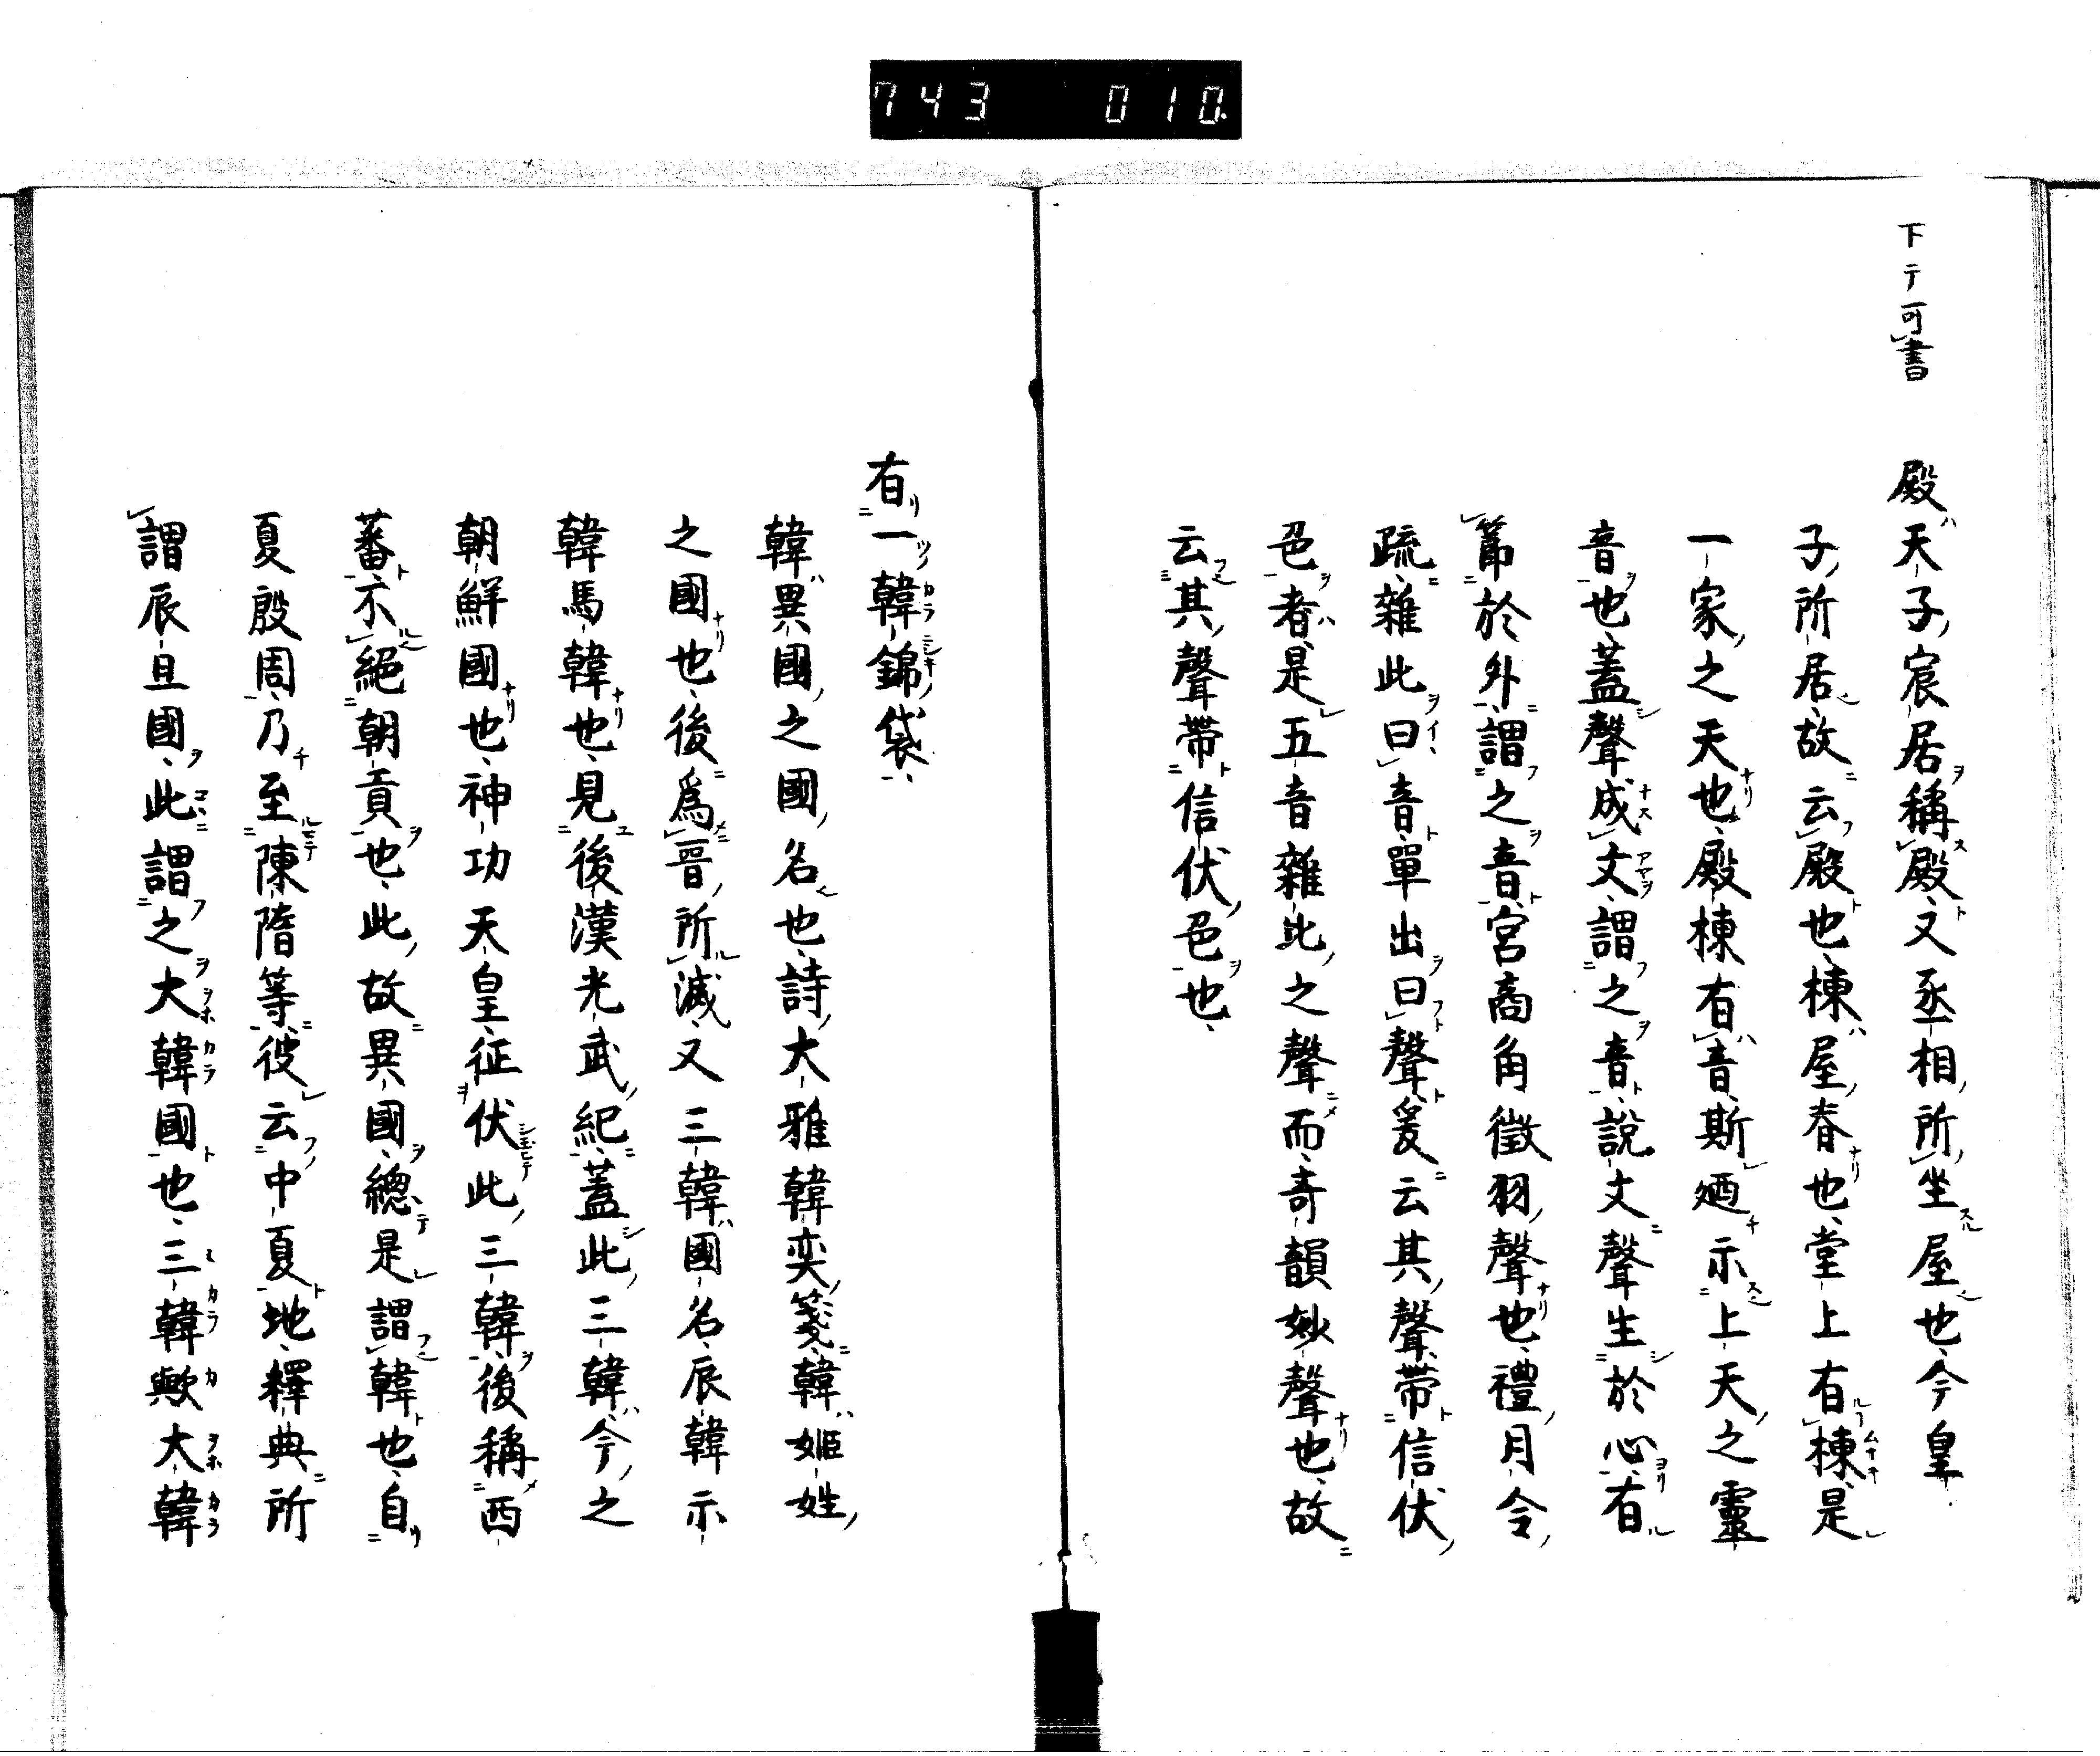 743 010
下テ可書
殿天子宸居稱殿又丞相所坐屋也今皇
子所居故云殿也棟屋脊也堂上有棟是
一家之天也殿棟有音斯廼示上天之靈
音也蓋聲成文謂之音說文聲生於心有
節於外謂之音宮商角徵羽聲也禮月令
疏雜此曰音單出曰聲爰云其聲帶信伏
色者是五音雜比之聲而奇韻妙聲也故
云其聲帶信伏色也
有一韓錦袋
韓異國之國名也詩大雅韓奕箋韓姬姓
之國也後爲晉所滅又三韓國名辰韓示
韓馬韓也見後漢光武紀蓋此三韓今之
朝鮮國也神功天皇征伏此三韓後稱西
蕃不絕朝貢也此故異國總是謂韓也自
夏殷周乃至陳隋等彼云中夏地釋典所
謂辰旦國此謂之大韓國也三韓歟大韓